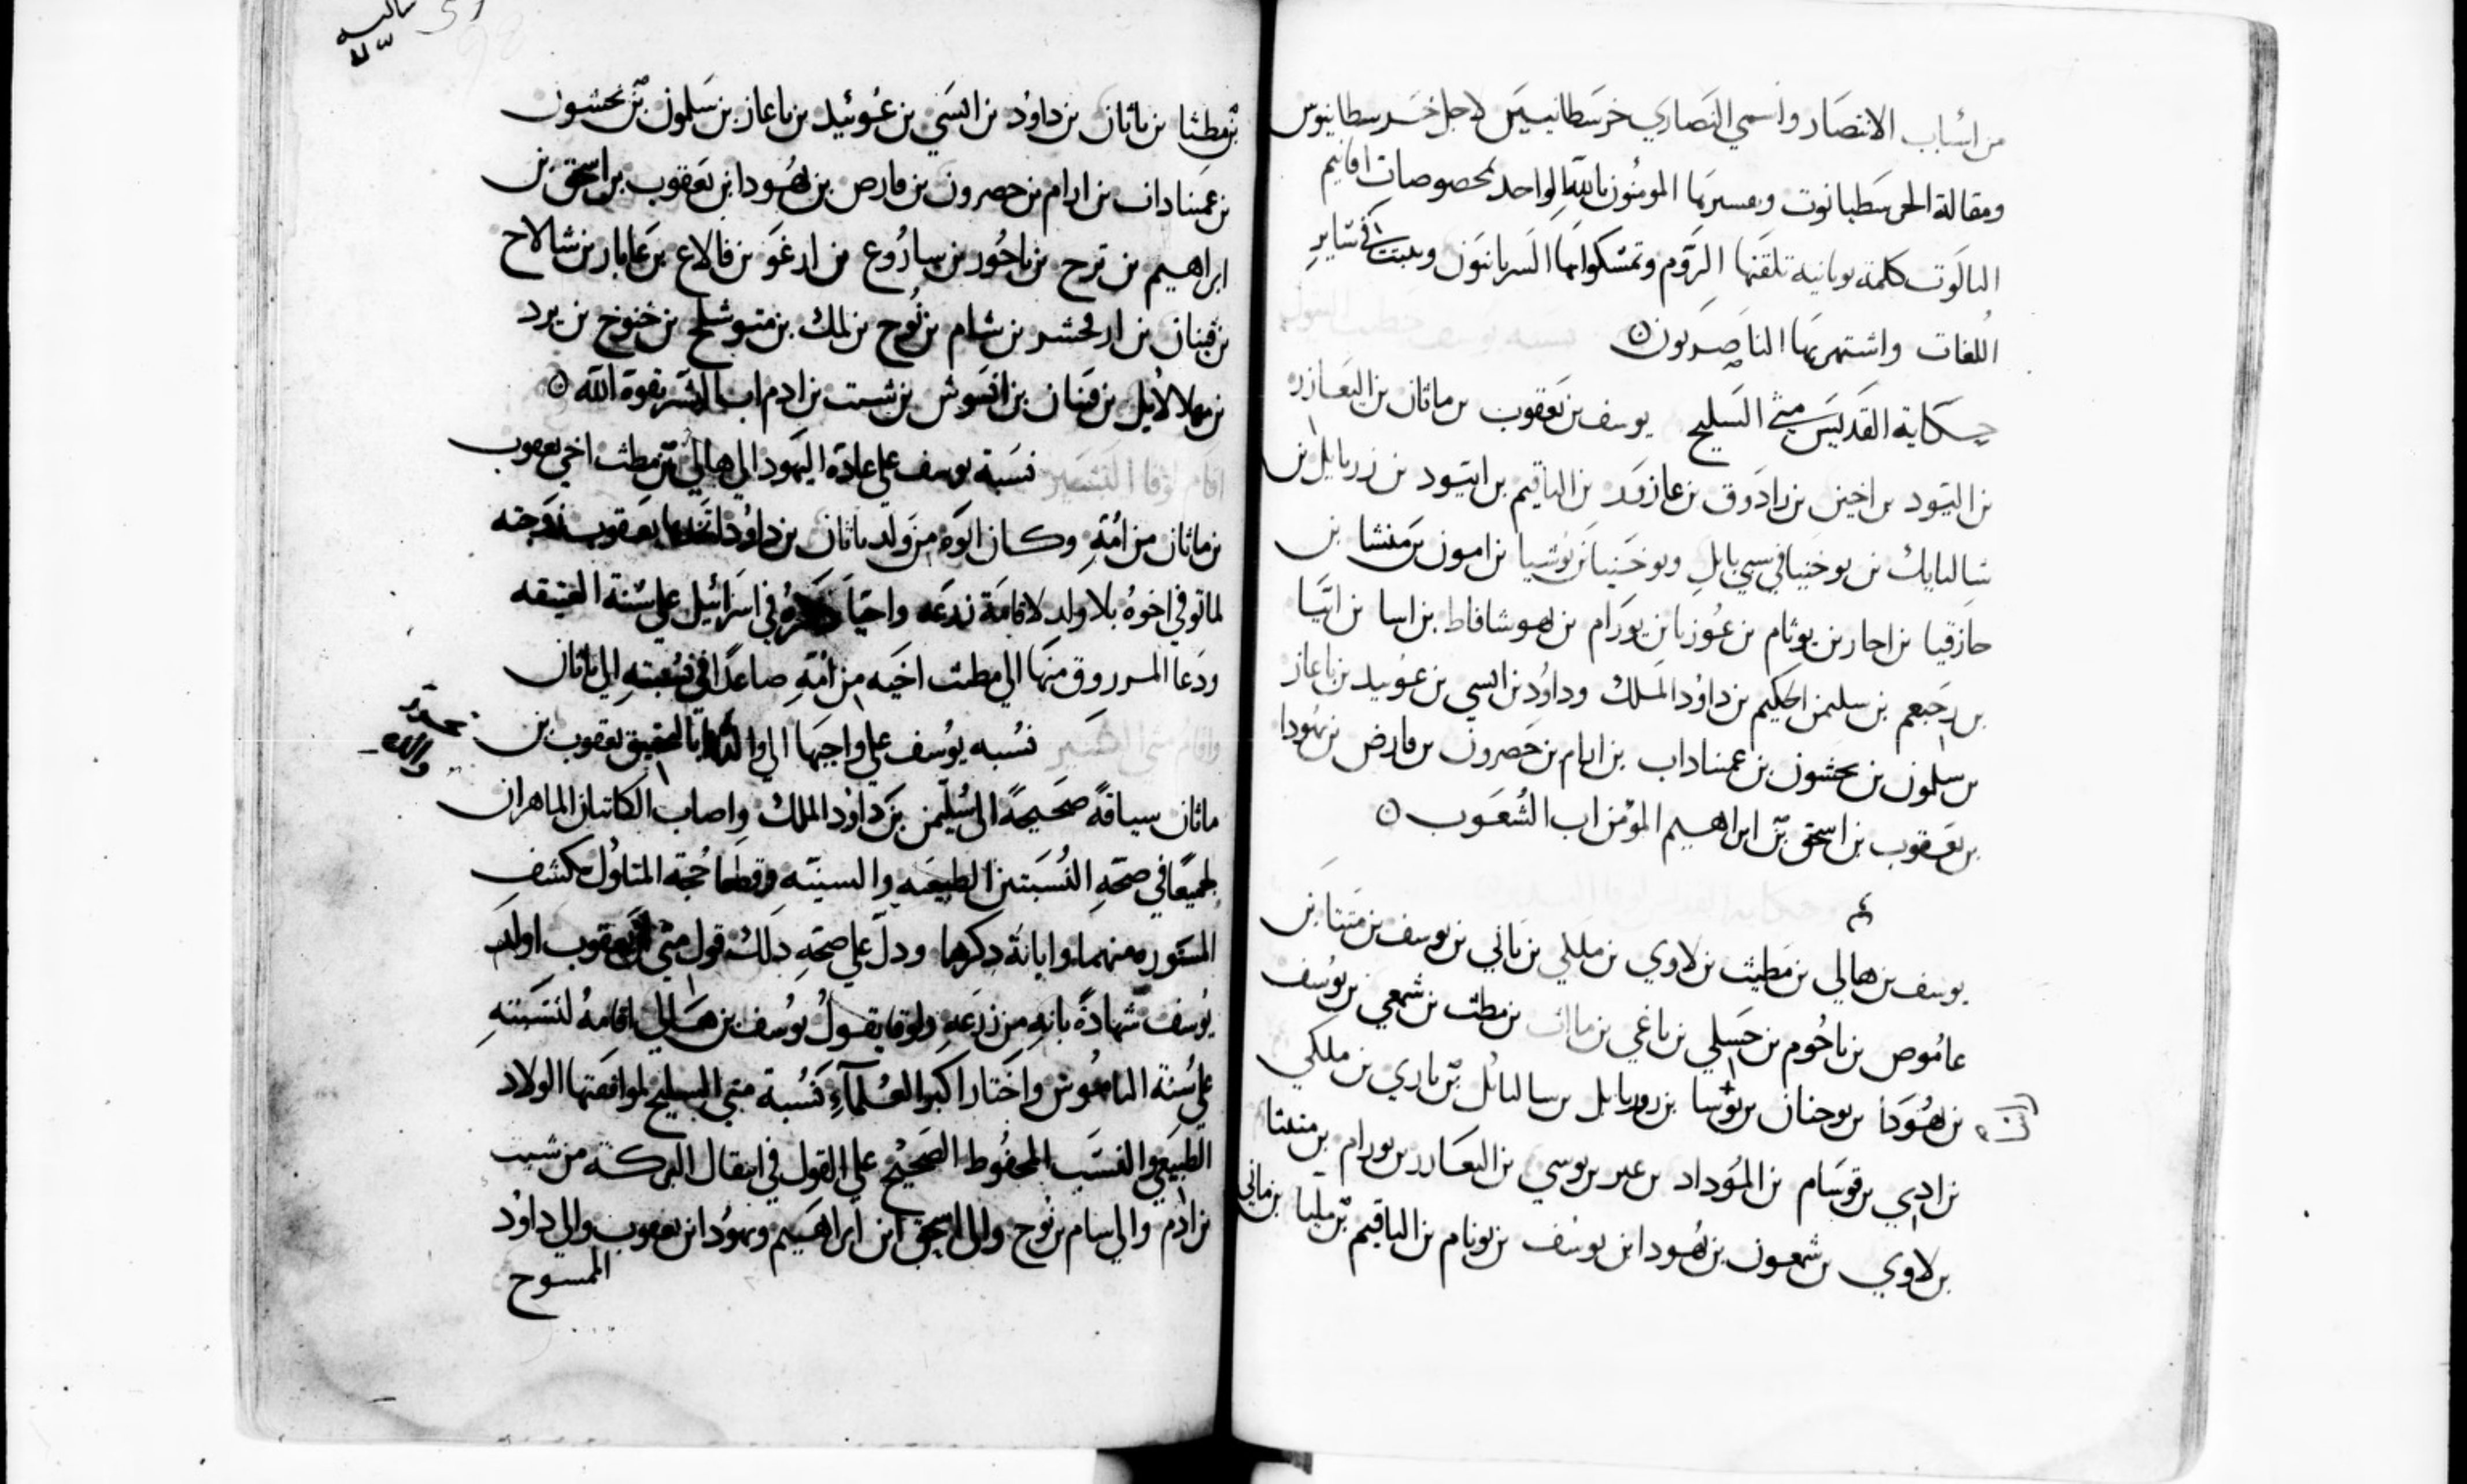 من اسباب الانتصار واسمي النصاري خرسطانيين لاجل خرسطانوس
ومقالة الحرسطيانوت ومسيرتها المومنون بالله الواحد لمخصوصات اقانيم
الثالوت كلمة يونانية تلقنها الروم وتمسكوا بها السريانيون وثبتت في ساير
اللغات واشتهر بها الناصريون
حكاية القديس متي السليح يوسف بن يعقوب بن ماثان بن اليعازر
بن اليود بن اخين بن زادوق بن عازور بن الياقيم بن ابيود بن زربابل بن
شالتيايل بن يوخنيا في سبي بابل ويوخنيا بن يوشيا بن امون بن منشا بن
حازقيا بن احاز بن يوثام بن عوزيا بن يورام بن يهوشافاط بن اسا بن ابيا
بن رحبعم بن سليمن الحكيم بن داود الملك وداود بن ايسي بن عوبيد بن باعاز
بن سلمون بن نحشون بن عميناداب بن ارام بن حصرون بن فارص بن يهودا
بن يعقوب بن اسحق بن ابراهيم المؤمن اب الشعوب
يوسف بن هالي بن مطيث بن لاوي بن ملكي بن ياني بن يوسف بن متيتا بن
عاموص بن ناحوم بن حسلي بن ناغي بن مااث بن مطث بن شمعي بن يوسف
بن يهودا بن يوحنان بن يوسا بن زوربابل بن سالتائل بن ناري بن ملكي
بن ادي بن قوسام بن المؤداد بن عير بن يوسي بن اليعازر بن يورام بن متيثا
بن لاوي بن شمعون بن يهودا بن يوسف بن يونام بن الياقيم بن مليا بن ماني
بن مطثا بن ناثان بن داود بن ايسي بن عوبيد بن باعاز بن سلمون بن نحشون
بن عميناداب بن ارام بن حصرون بن فارص بن يهودا بن يعقوب بن اسحق بن
ابراهيم بن ترح بن ناحور بن ساروع بن ارغو بن فالاع بن عابار بن شالاح
بن قينان بن ارفحشد بن شام بن نوح بن لمك بن متوشلح بن خنوخ بن يرد
بن مهلالايل بن قينان بن انوش بن شيت بن ادم اب البشر بقوة الله
اقام لوقا التفسير نسبة يوسف علي عادة اليهود الي هالي بن مطث اخي يعقوب
بن ماثان من امه وكان ابوه من ولد ناثان بن داود يعقوب زوجته
لما توفي اخوه بلا ولد لاقامة زرعه واحيا ذكره في اسرائيل علي سنة العتيقه
ودعا المرزوق منها الي مطث اخيه من امه صاعدا في نسبته الي ناثان
واقام متي نسبه يوسف علي واجبها الي بالحقيق يعقوب بن
ماثان سياقة صحيحة الي سليمن بن داود الملك واصاب الكاتبان الماهران
جميعا في صحة النسبتين الطبيعيه والسنيه وقطعا حجة المتاول بكشف
المستوره منهما وابانة ذكرهما ودل علي صحة ذلك قول متي ان يعقوب اولد
يوسف شهادة بانه من زرعه ولوقا يقول يوسف بن هالي باقامة لنسبته
علي سنة الناموس واختار اكبر العلماء نسبة متي السليح لموافقتها الولاد
الطبيعي والنسب المحفوظ الصحيح علي القول في انتقال البركة من شيت
بن ادم والي سام بن نوح والي اسحق ابن ابراهيم ويهودا ابن يعقوب والي داود
المسوح